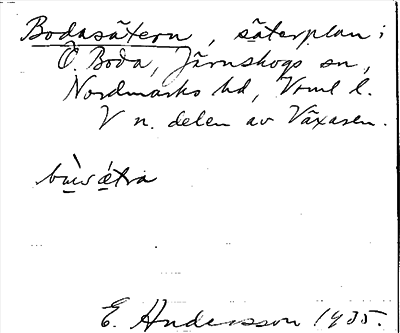 Bodasätern, säterplan i
Ö. Boda, Järnskogs sn,
Nordmarks hd, Vrml l.
V n. delen av Växasen.
E. Andersson 1935.